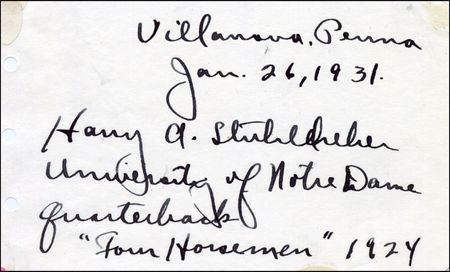 Villanova, Penna
Jan. 26, 1931.
Harry A. Stuhldreher
University of Notre Dame
quarterback
"Four Horsemen" 1924